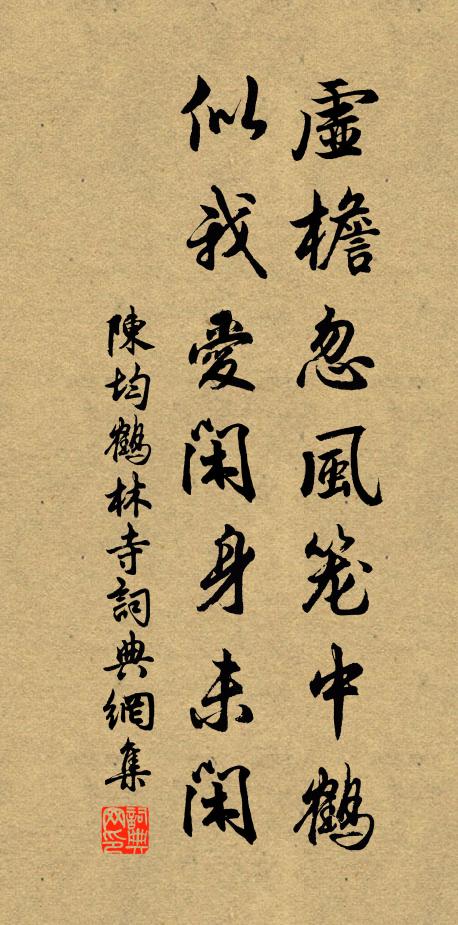 虛檐忽風笼中鶴
似我愛閑身未閑
陳均鶴林寺詞典網集
詞典网印